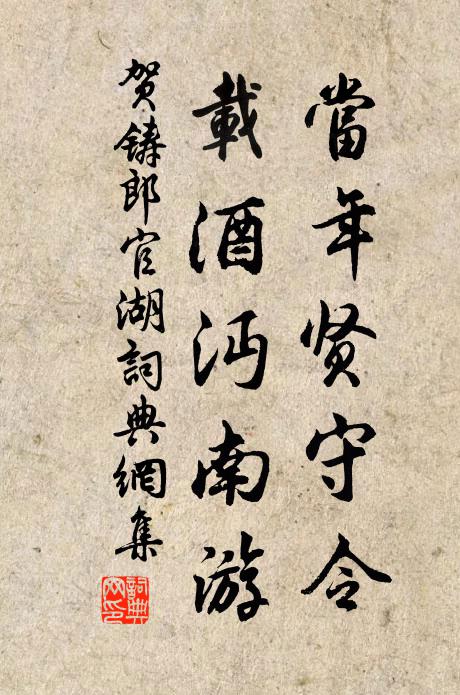 當年贤守令
載酒沔南游
贺鑄郎官湖詞典網集
詞典網印